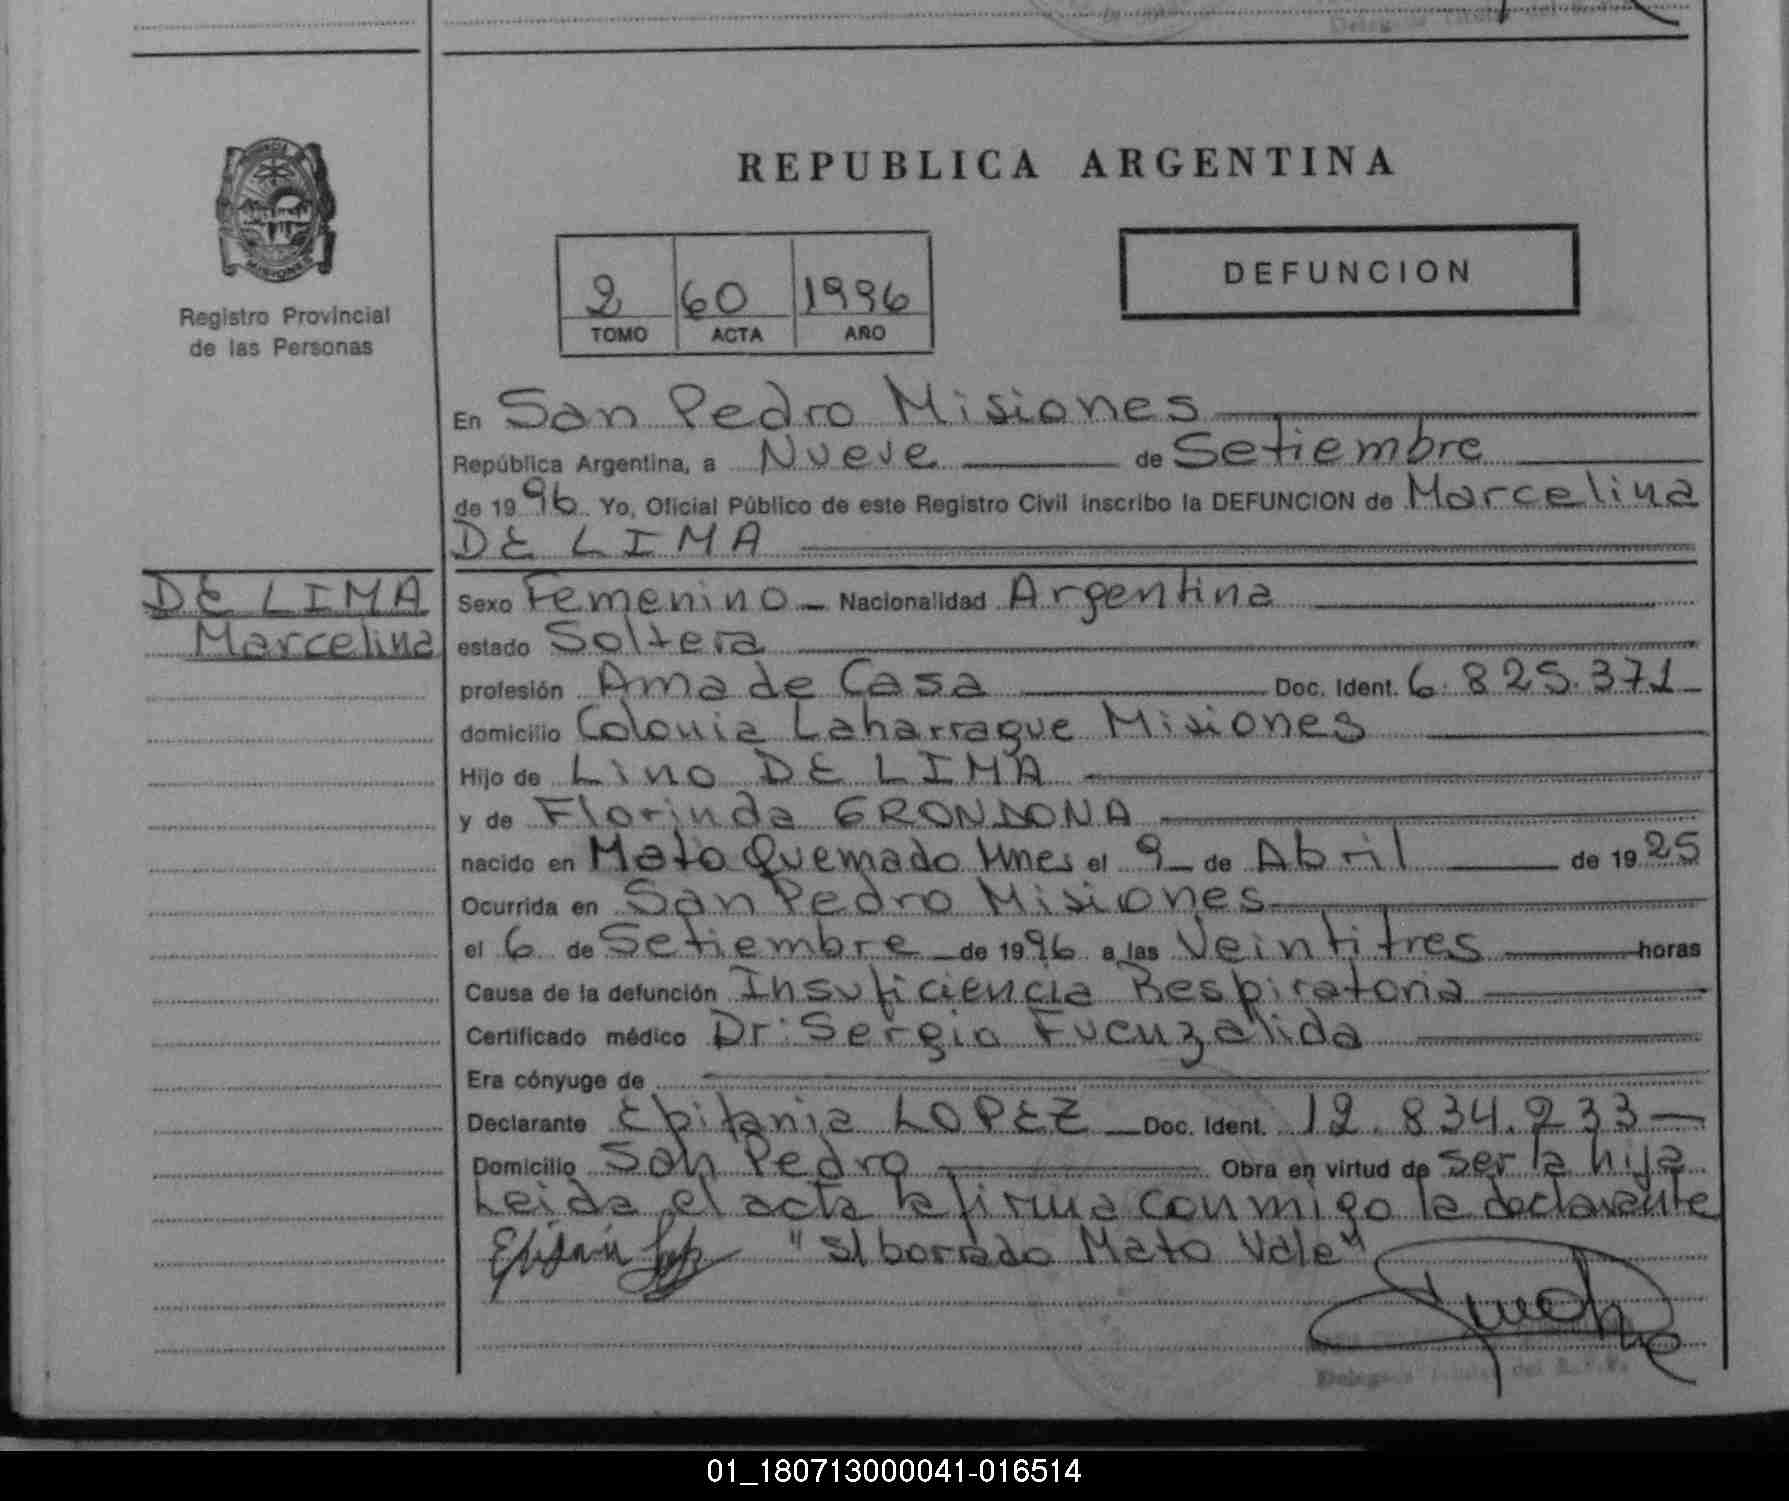 REPUBLICA ARGENTINA
DEFUNCION
2 60 1996
TOMO ACTA AÑO
Registro Provincial
de las Personas
En San Pedro Misiones
República Argentina, a Nueve de Setiembre
de 1996 Yo, Oficial Público de este Registro Civil inscribo la DEFUNCION de Marcelina
DE LIMA
DE LIMA
Marcelina
Sexo Femenino - Nacionalidad Argentina
estado Soltera
profesión Ama de Casa Doc. Ident. 6.825.371
domicilio Colonia Laharrague Misiones
Hijo de Lino DE LIMA
y de Florinda GRONDONA
nacido en Mato Quemado Mnes el 9 de Abril de 1925
Ocurrida en San Pedro Misiones
el 6 de Setiembre de 1996 a las Veintitres horas
Causa de la defunción Insuficiencia Respiratoria
Certificado médico Dr: Sergio Fucuzalida
Era cónyuge de
Declarante Epifania LOPEZ Doc. Ident. 12.834.233
Domicilio San Pedro Obra en virtud de ser la hija
Leida el acta la firma conmigo la declarante
"S/ borrado Mato Vale"
01_180713000041-016514